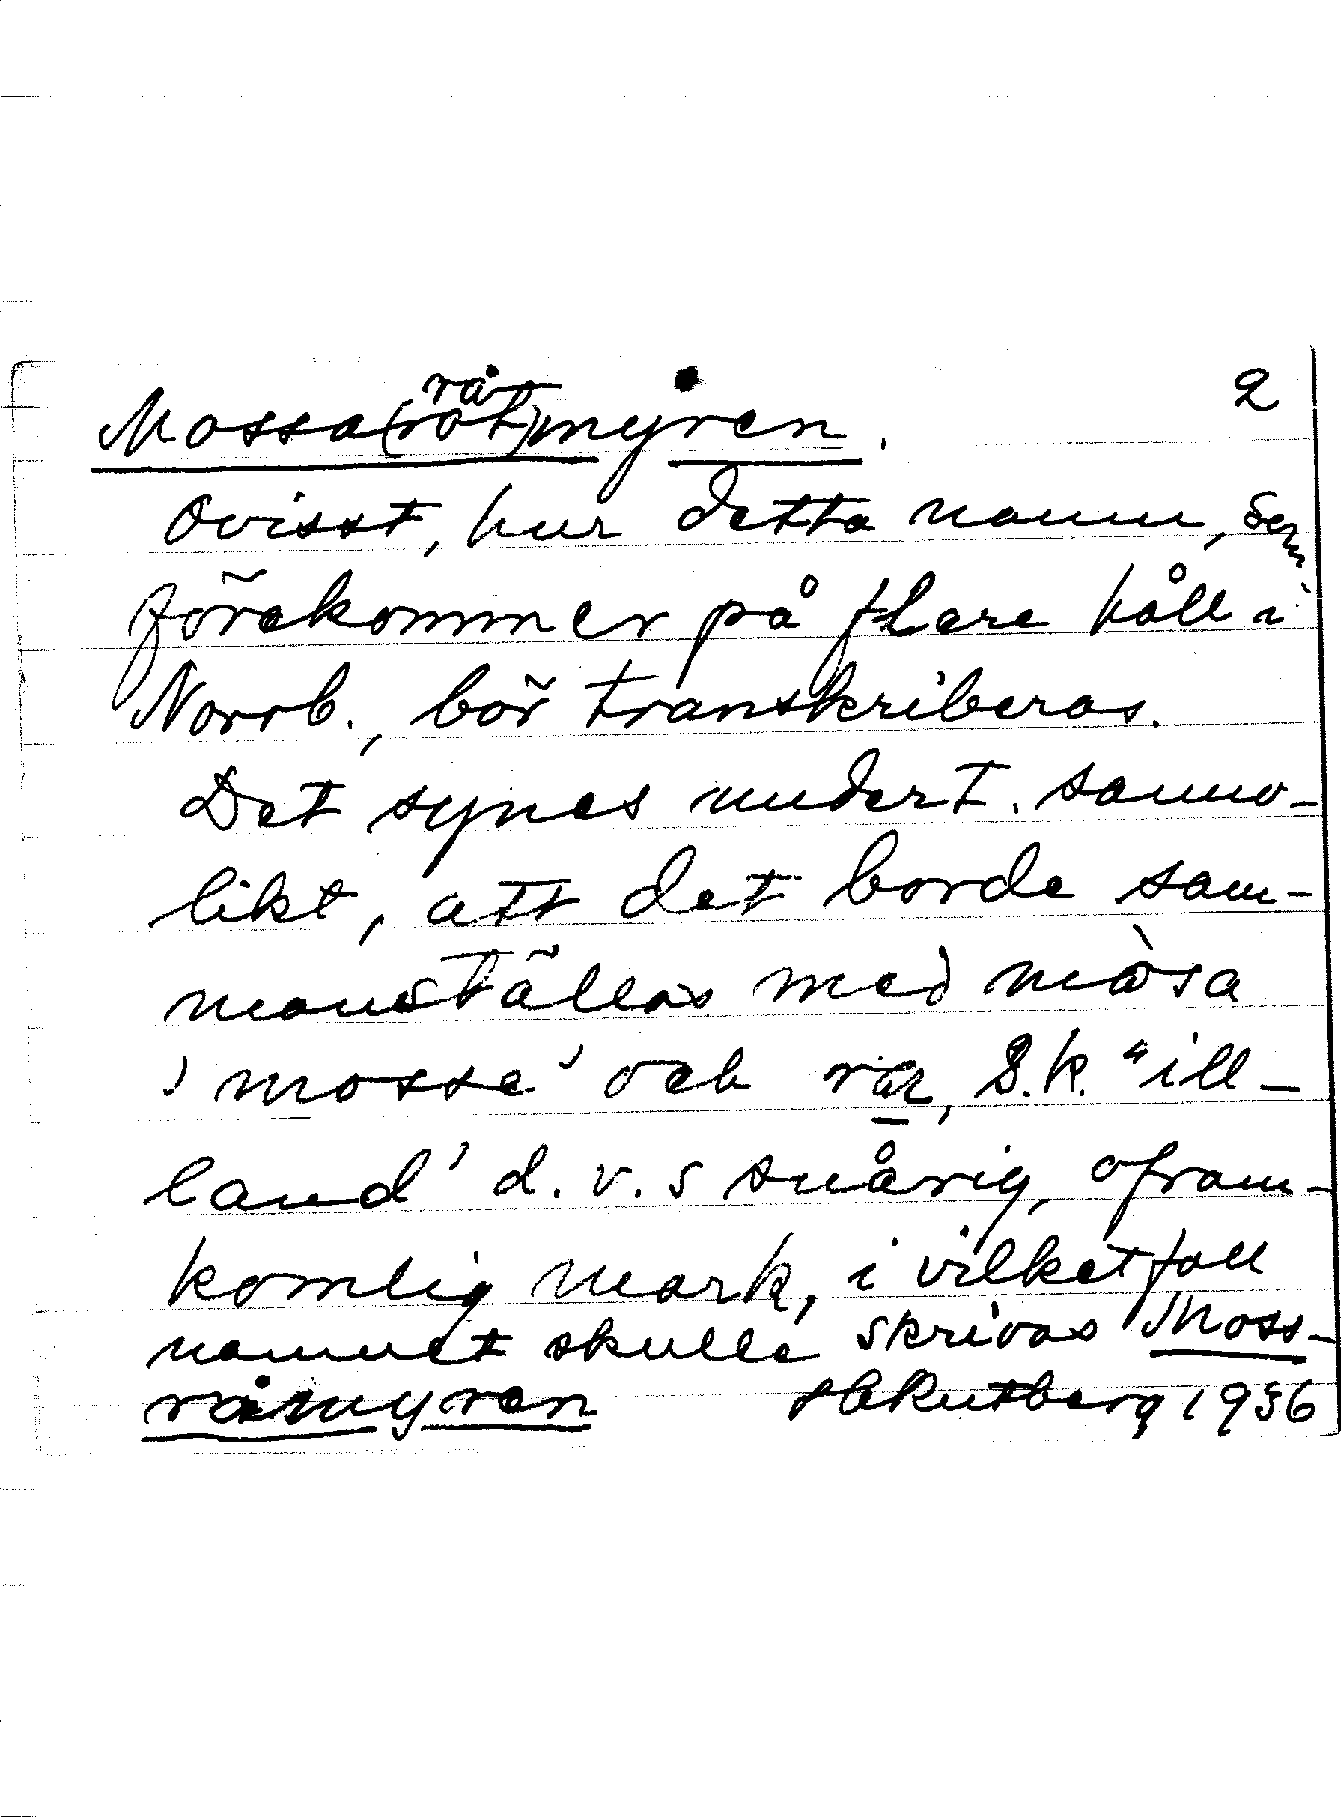 2
rå
Mossa(röt)myren.
Ovisst, hur detta namn, som
förekommer på flere håll i
Norrb., bör transkriberas.
Det synes undert. sanno-
likt, att det borde sam-
manställas med mòsa
'mosse' och rar, s.k. "ill-
land' d.v.s snårig, ofram-
komlig mark, i vilket fall
namnet skulle skrivas Moss-
råmyren
1936